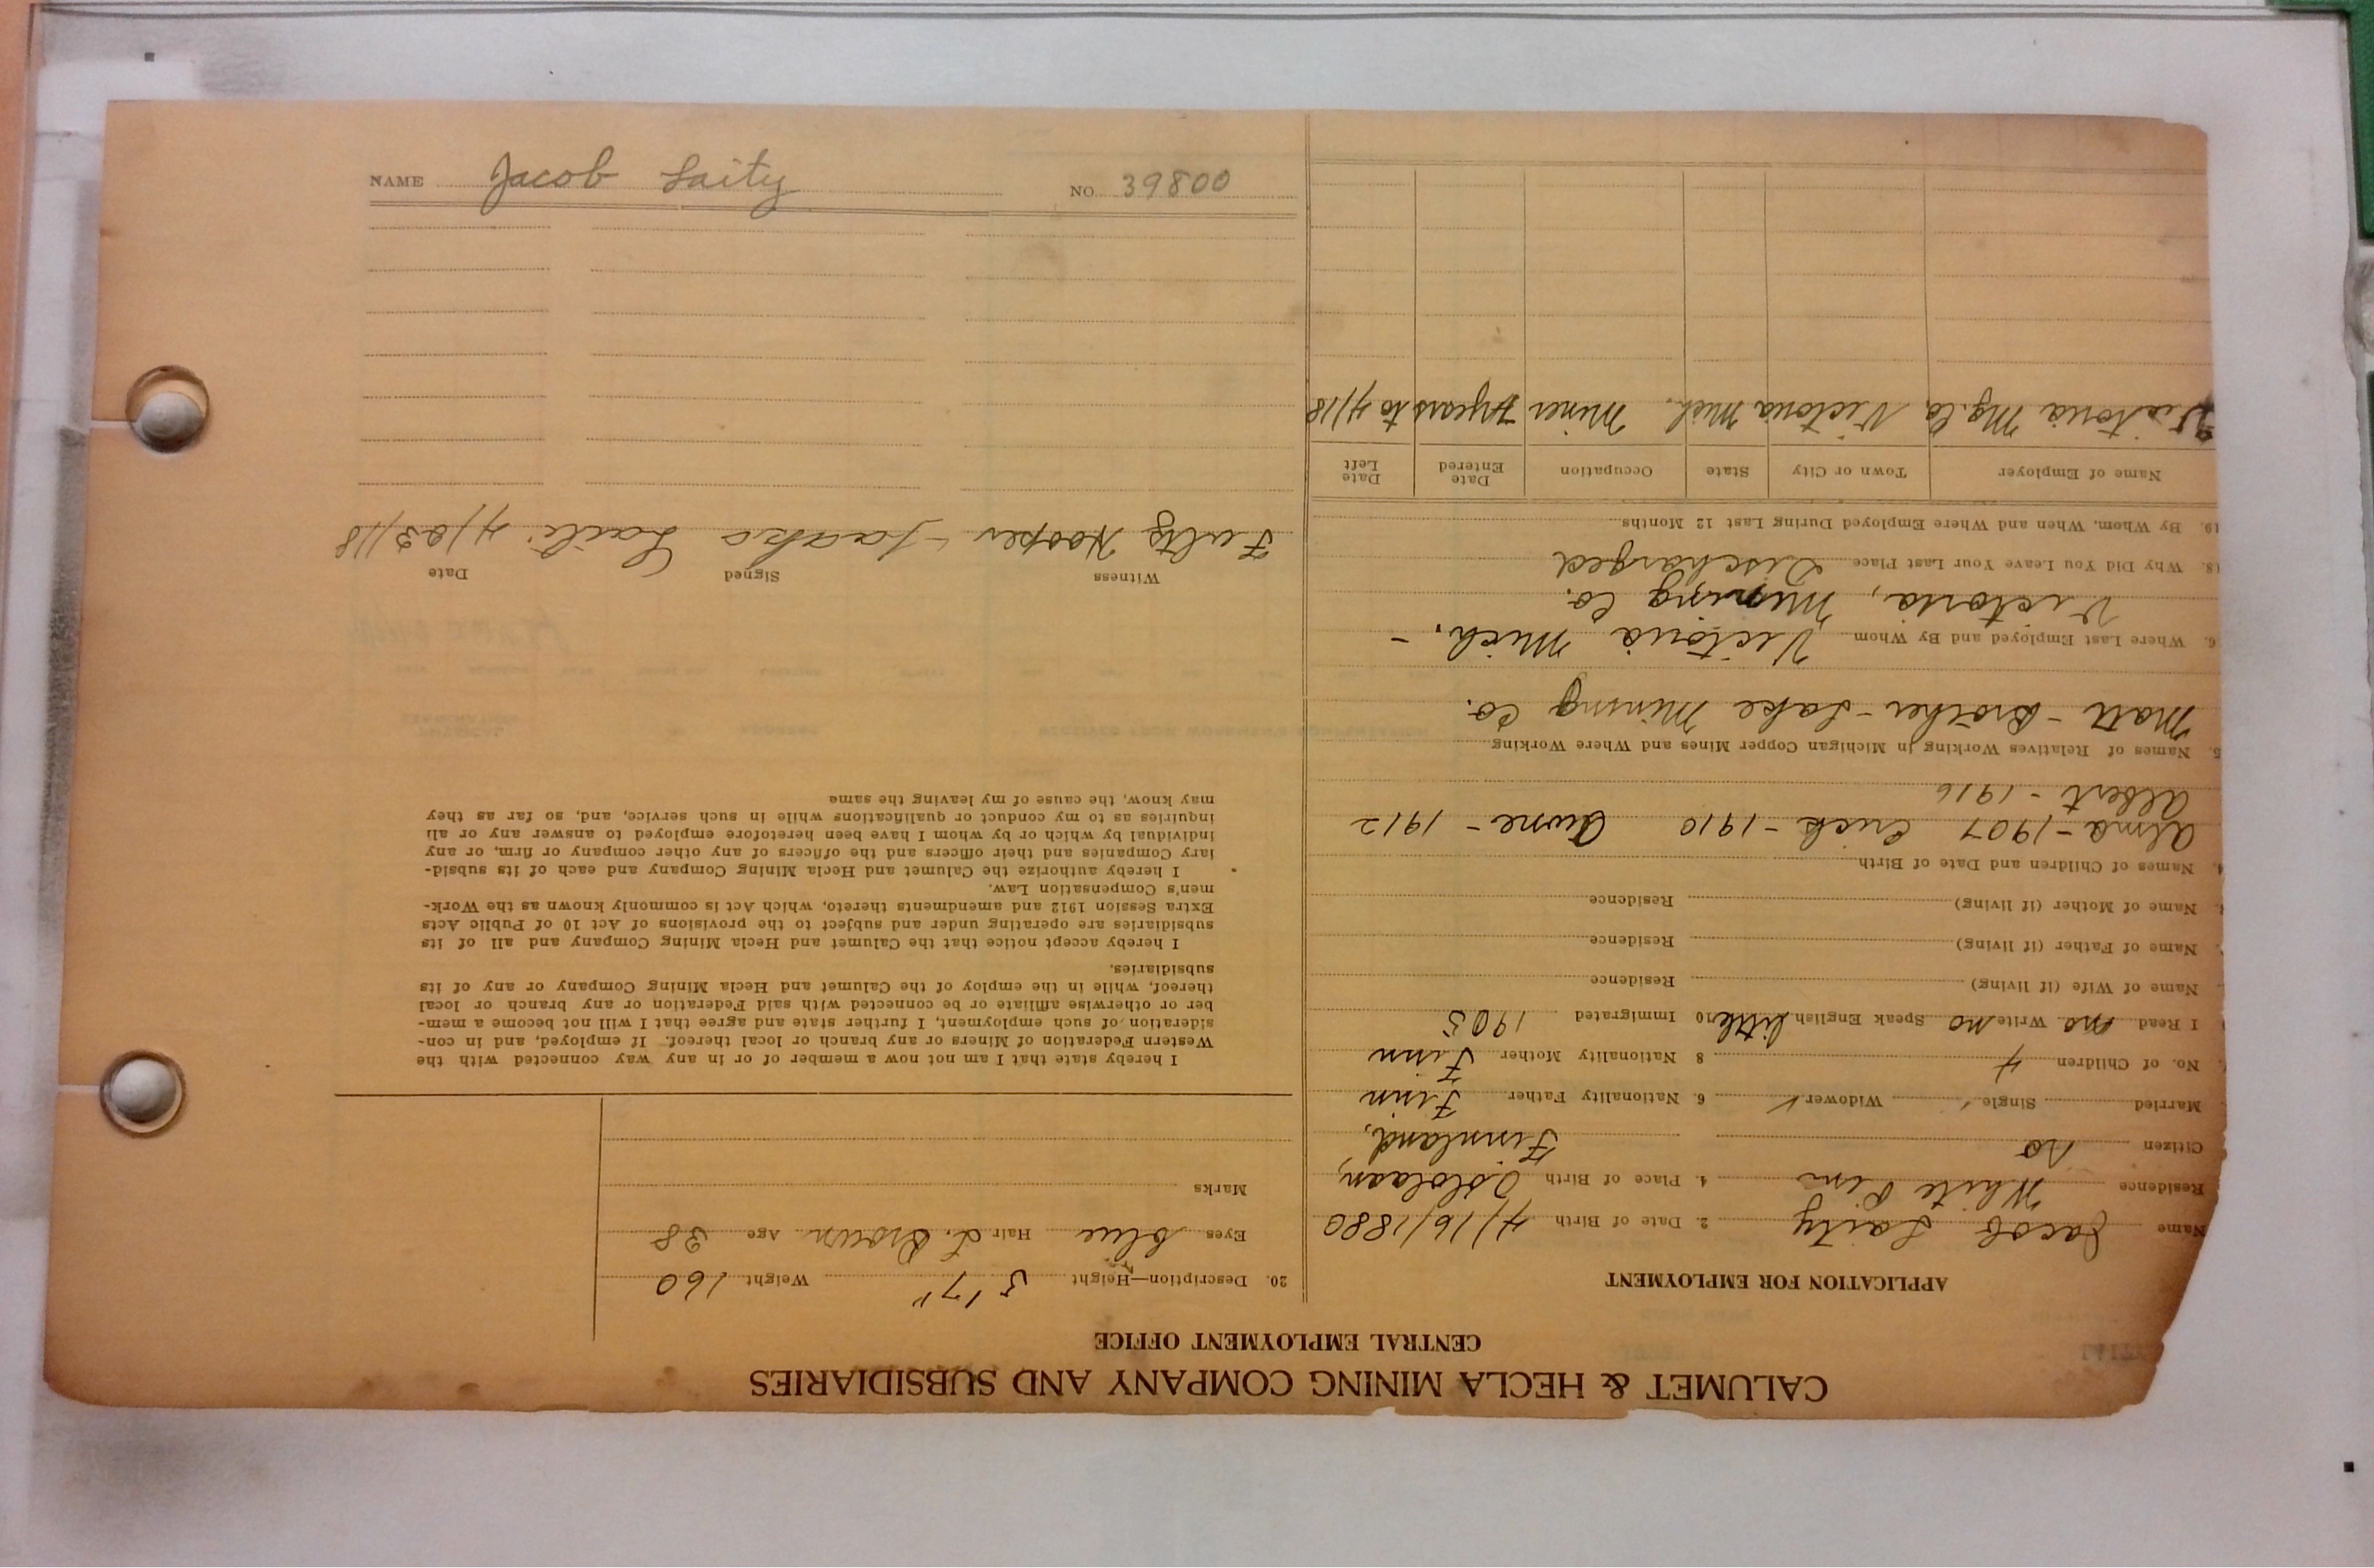 CALUMET & HECLA MINING COMPANY AND SUBSIDIARIES
CENTRAL EMPLOYMENT OFFICE
APPLICATION FOR EMPLOYMENT
Name Jacob Laity 2. Date of Birth 4/16/1880
Residence White Pine 4. Place of Birth
Citizen no Finnland,
Married Single Widower ✓ 6. Nationality Father Finn
No. of Children 4 8 Nationality Mother Finn
I Read no Write no Speak English little 10 Immigrated 1905
Name of Wife (if living) Residence
Name of Father (if living) Residence
Name of Mother (if living) Residence
4. Names of Children and Date of Birth
Alma - 1907 Erick - 1910 - 1912
Albert - 1916
5. Names of Relatives Working in Michigan Copper Mines and Where Working
Matt - Brother - Lake Mining Co.
6. Where Last Employed and By Whom Victoria Mich. -
Victoria, Mining Co.
18. Why Did You Leave Your Last Place Discharged
19. By Whom, When and Where Employed During Last 12 Months
Name of Employer Town or City State Occupation Date Entered Date Left
Victoria Mg. Co. Victoria Mich. Miner 7 years to 4/18
20. Description—Height 5'7" Weight 160
Eyes blue Hair L. Brown Age 38
Marks
I hereby state that I am not now a member of or in any way connected with the
Western Federation of Miners or any branch or local thereof. If employed, and in con-
sideration of such employment, I further state and agree that I will not become a mem-
ber or otherwise affiliate or be connected with said Federation or any branch or local
thereof, while in the employ of the Calumet and Hecla Mining Company or any of its
subsidiaries.
I hereby accept notice that the Calumet and Hecla Mining Company and all of its
subsidiaries are operating under and subject to the provisions of Act 10 of Public Acts
Extra Session 1912 and amendments thereto, which Act is commonly known as the Work-
men's Compensation Law.
I hereby authorize the Calumet and Hecla Mining Company and each of its subsid-
iary Companies and their officers and the officers of any other company or firm, or any
individual by which or by whom I have been heretofore employed to answer any or all
inquiries as to my conduct or qualifications while in such service, and, so far as they
may know, the cause of my leaving the same
Witness Signed Date
Hooper Jaako Laiti 4/23/18
NAME Jacob Laity NO. 39800